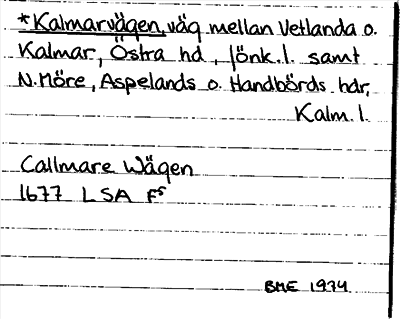 *Kalmarvägen, väg mellan Vetlanda o.
Kalmar, Östra hd, Jönk.l. samt
N.Möre, Aspelands o. Handbörds hdr,
Kalm. l.
Callmare Wägen
1677 LSA Fs
BME 1974